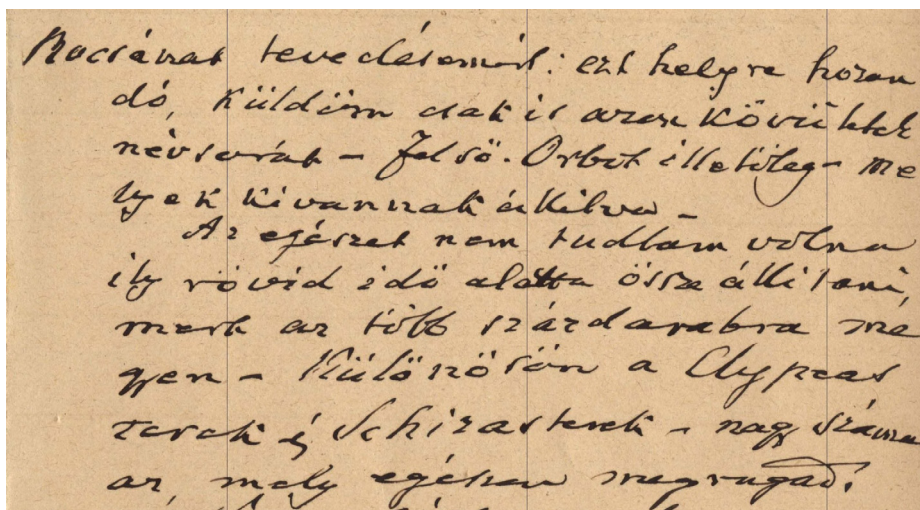 Bocsánat tevedésemért: ezt helyre hozan
dó, küldöm csak is azon kövületek
névsorát – Felső-Orbót illetőleg – me
lyek ki vannak állitva –
Az egészet nem tudtam volna
ily rövid idő alatta össze állitani,
mert az több szárdarabra me
gyen – Különösön a Clypeas
terek és Schizasterek – nagy száma
az, mely egészen megragad!